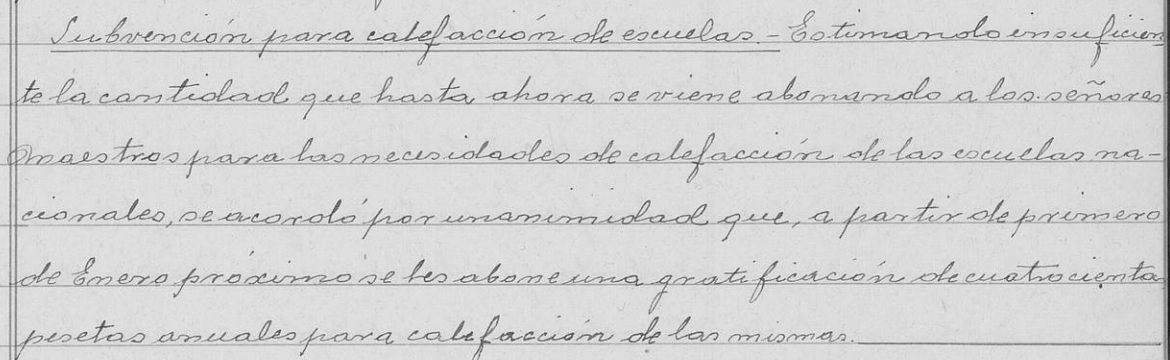 Subvención para calefacción de escuelas.- Estimando insuficien
te la cantidad que hasta ahora se viene abonando a los señores
maestros para las necesidades de calefacción de las escuelas na-
cionales, se acordó por unanimidad que, a partir de primero
de Enero próximo se les abone una gratificación de cuatrocienta
pesetas anuales para calefacción de las mismas.